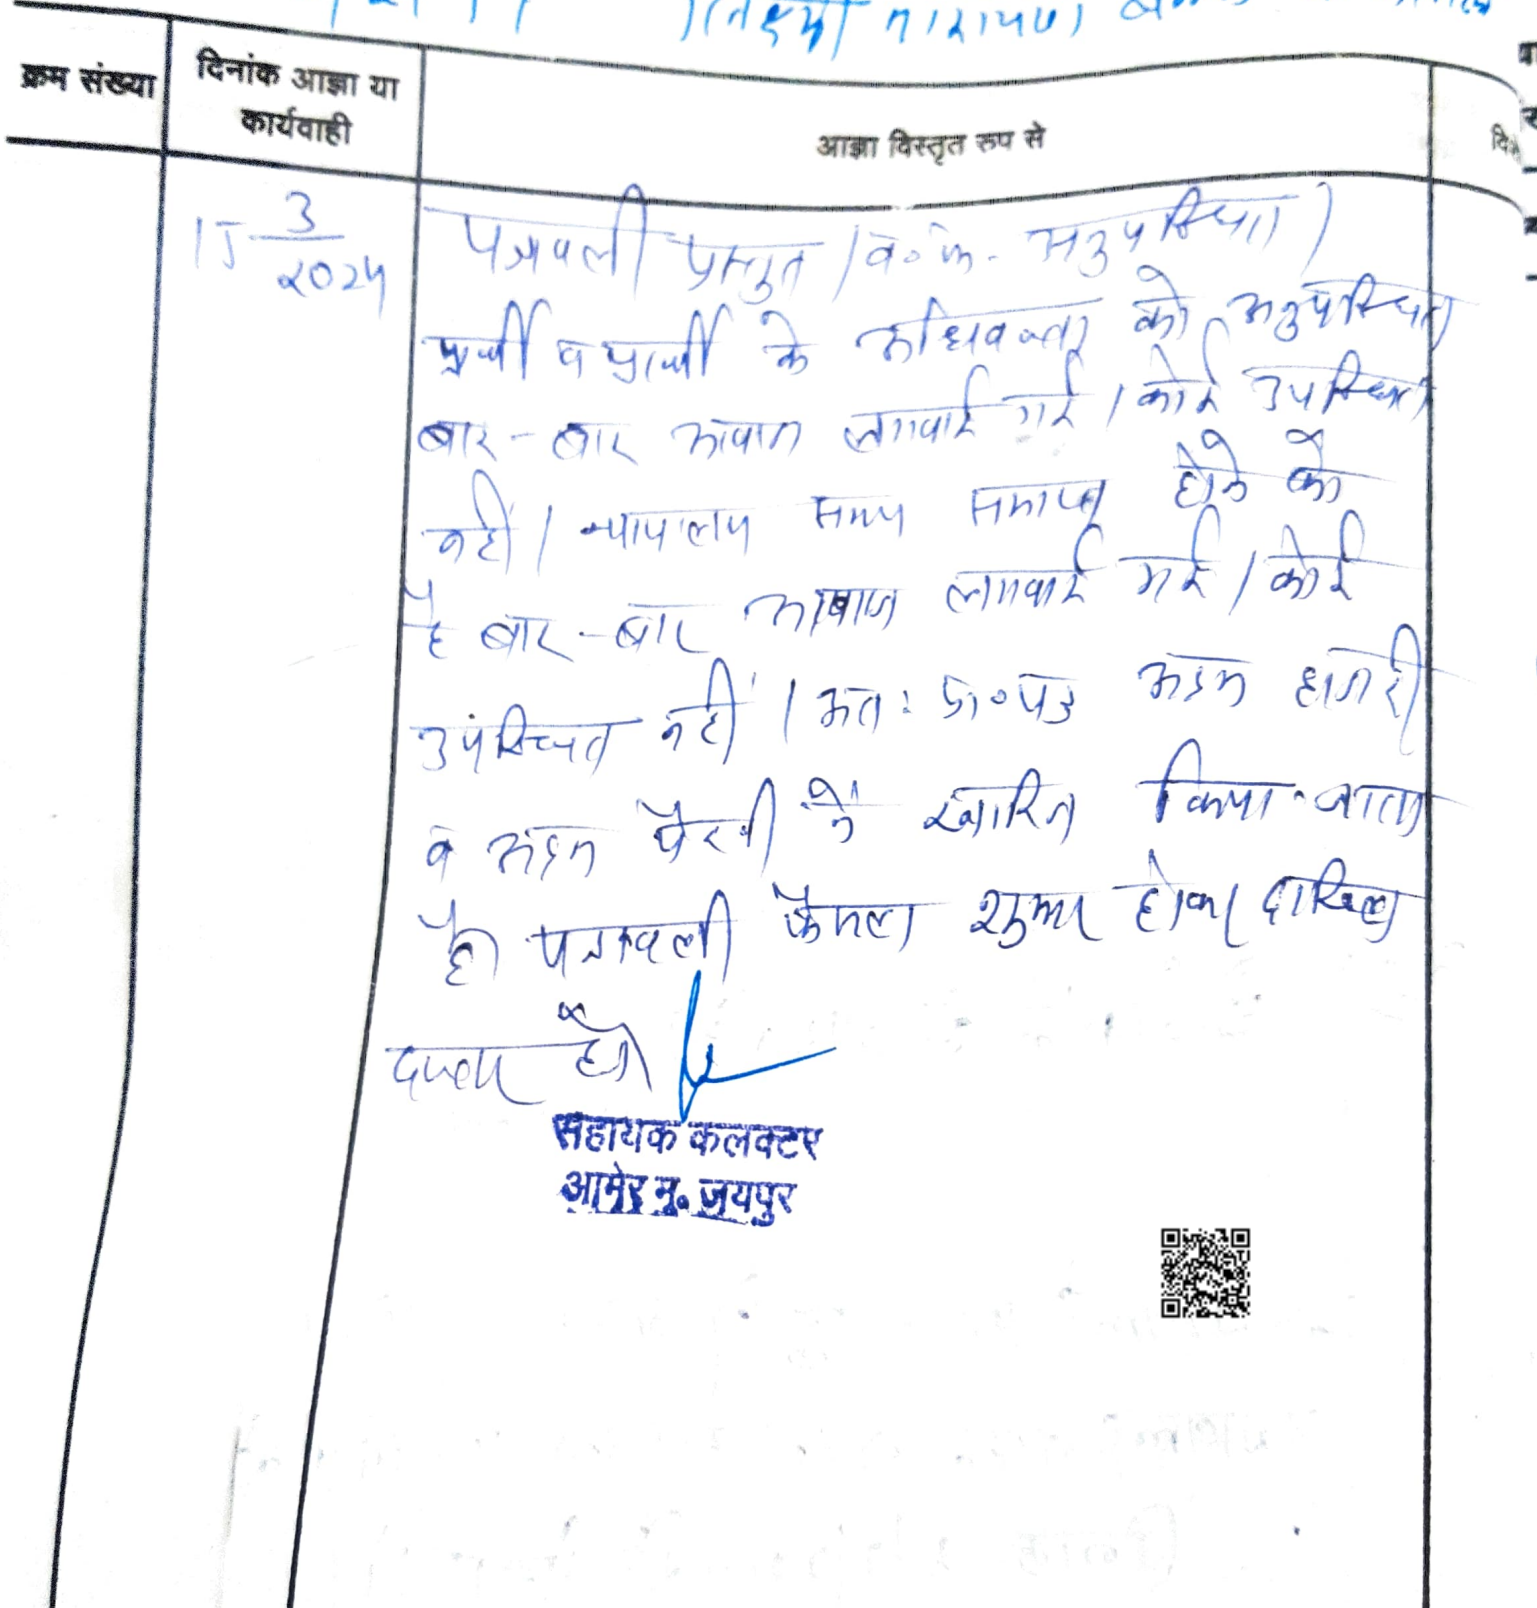 लक्ष्मी नारायण
क्रम संख्या
दिनांक आज्ञा या
कार्यवाही
आज्ञा विस्तृत रुप से
15 3/2024
पत्रावली प्रस्तुत। व०फ० अनुपस्थित।
प्रार्थी व प्रार्थी के अधिवक्ता को अनुपस्थित
बार-बार आवाज लगवाई गई। कोई उपस्थित
नहीं। न्यायालय समय समाप्त होने को
है बार-बार आवाज लगवाई गई। कोई
उपस्थित नहीं। अतः प्रा०पत्र अदम हाजरी
व अदम पैरवी में खारिज किया जाता
है। पत्रावली फैसल शुमार होकर दाखिल
दफ्तर हो।
सहायक कलक्टर
आमेर मु. जयपुर